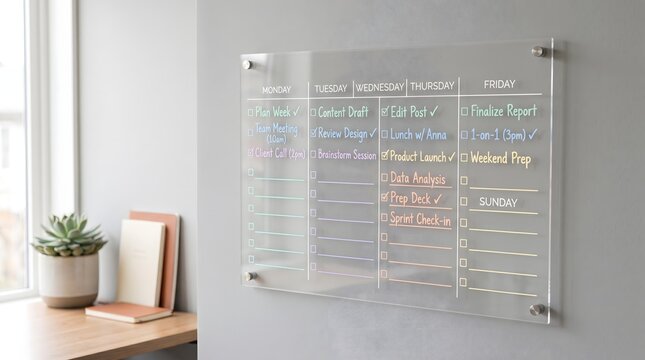 MONDAY
TUESDAY
WEDNESDAY
THURSDAY
FRIDAY
☐ Plan Week ✓
☐ Team Meeting
(10am)
☑ Client Call (2pm)
☐ Content Draft
☑ Review Design ✓
☐ Brainstorm Session
☑ Edit Post ✓
☐ Lunch w/ Anna
☑ Product Launch ✓
☐ Data Analysis
☑ Prep Deck ✓
☐ Sprint Check-in
☐ Finalize Report
☐ 1-on-1 (3pm) ✓
☐ Weekend Prep
SUNDAY